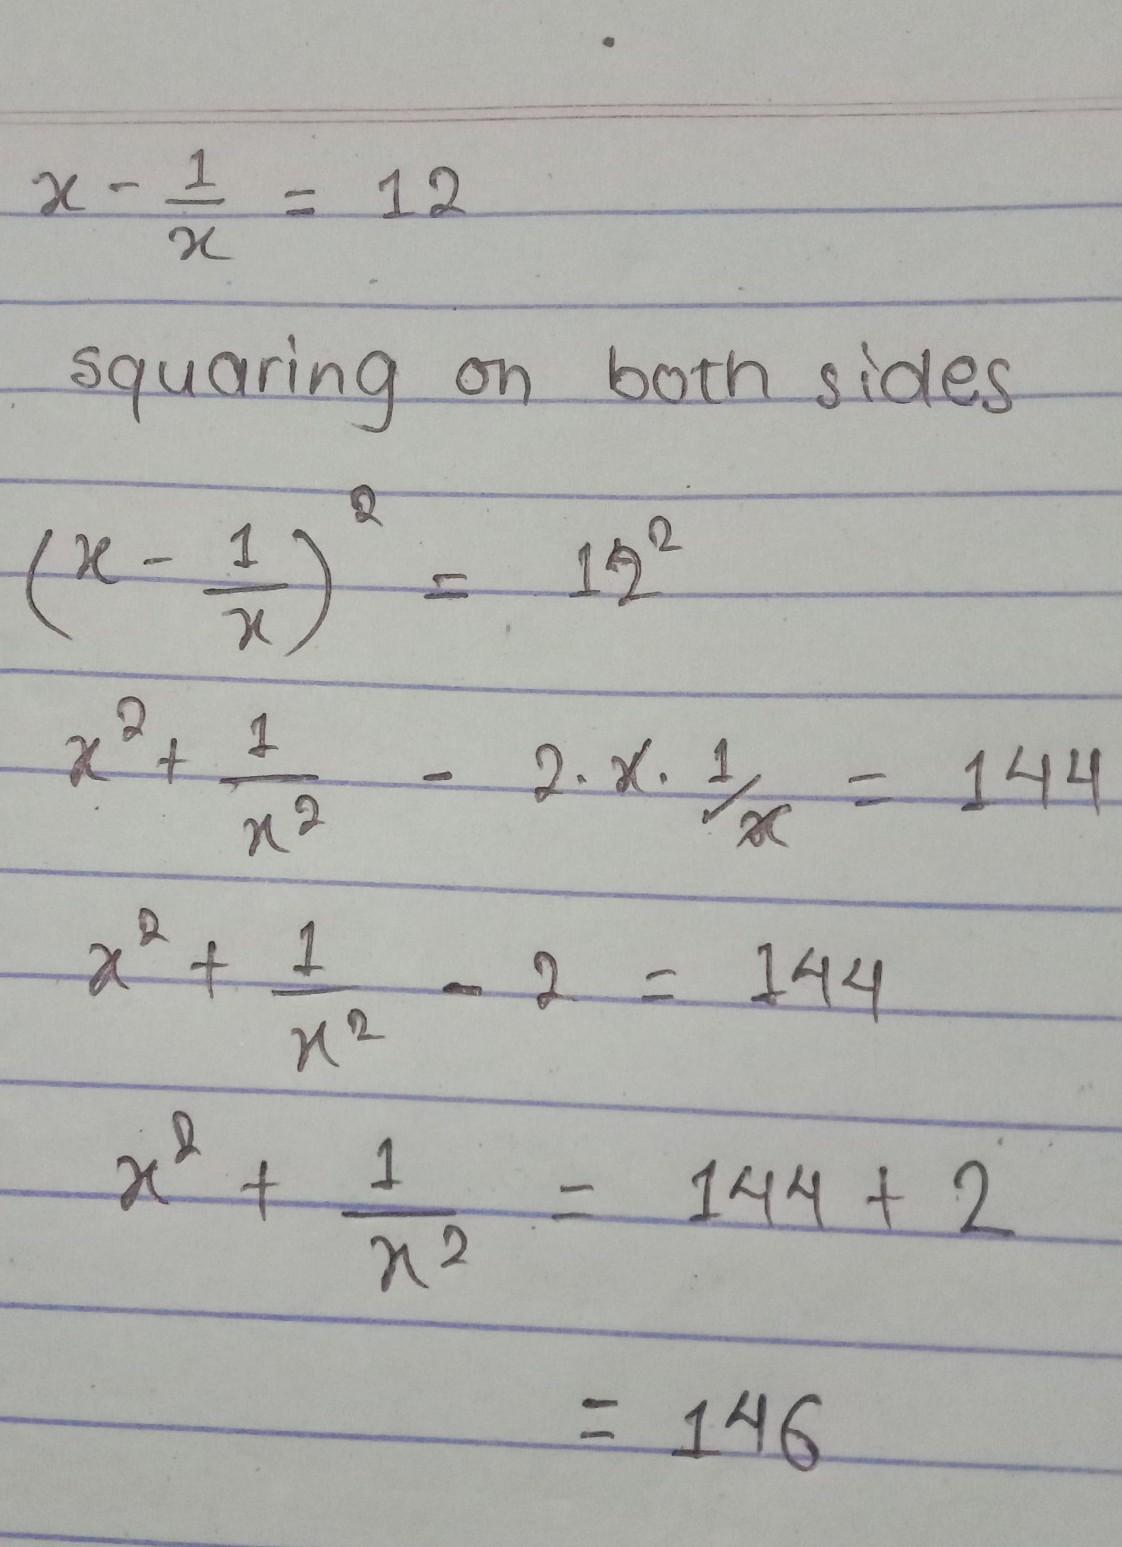 x - 1/x = 12
squaring on both sides
(x - 1/x)² = 12²
x² + 1/x² - 2. x. 1/x = 144
x² + 1/x² - 2 = 144
x² + 1/x² = 144 + 2
= 146